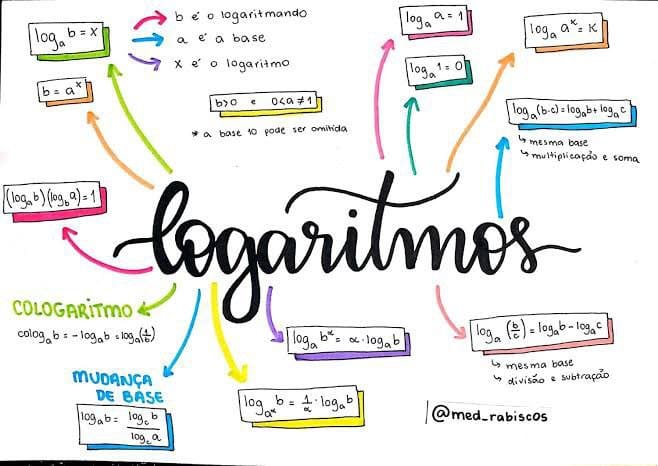 logₐ b = x
b = aˣ
b é o logaritmando
a é a base
x é o logaritmo
b>0 e 0<a≠1
* a base 10 pode ser omitida
logₐ a = 1
logₐ 1 = 0
logₐ aᵏ = K
logₐ(b·c) = logₐb + logₐc
↳ mesma base
↳ multiplicação e soma
(logₐb)(log_b a) = 1
logaritmos
COLOGARITMO
cologₐb = -logₐb = logₐ(1/b)
MUDANÇA
DE BASE
logₐb = log_c b / log_c a
logₐ b^α = α·logₐb
log_a^α b = 1/α · logₐb
logₐ(b/c) = logₐb - logₐc
↳ mesma base
↳ divisão e subtração
@med_rabiscos